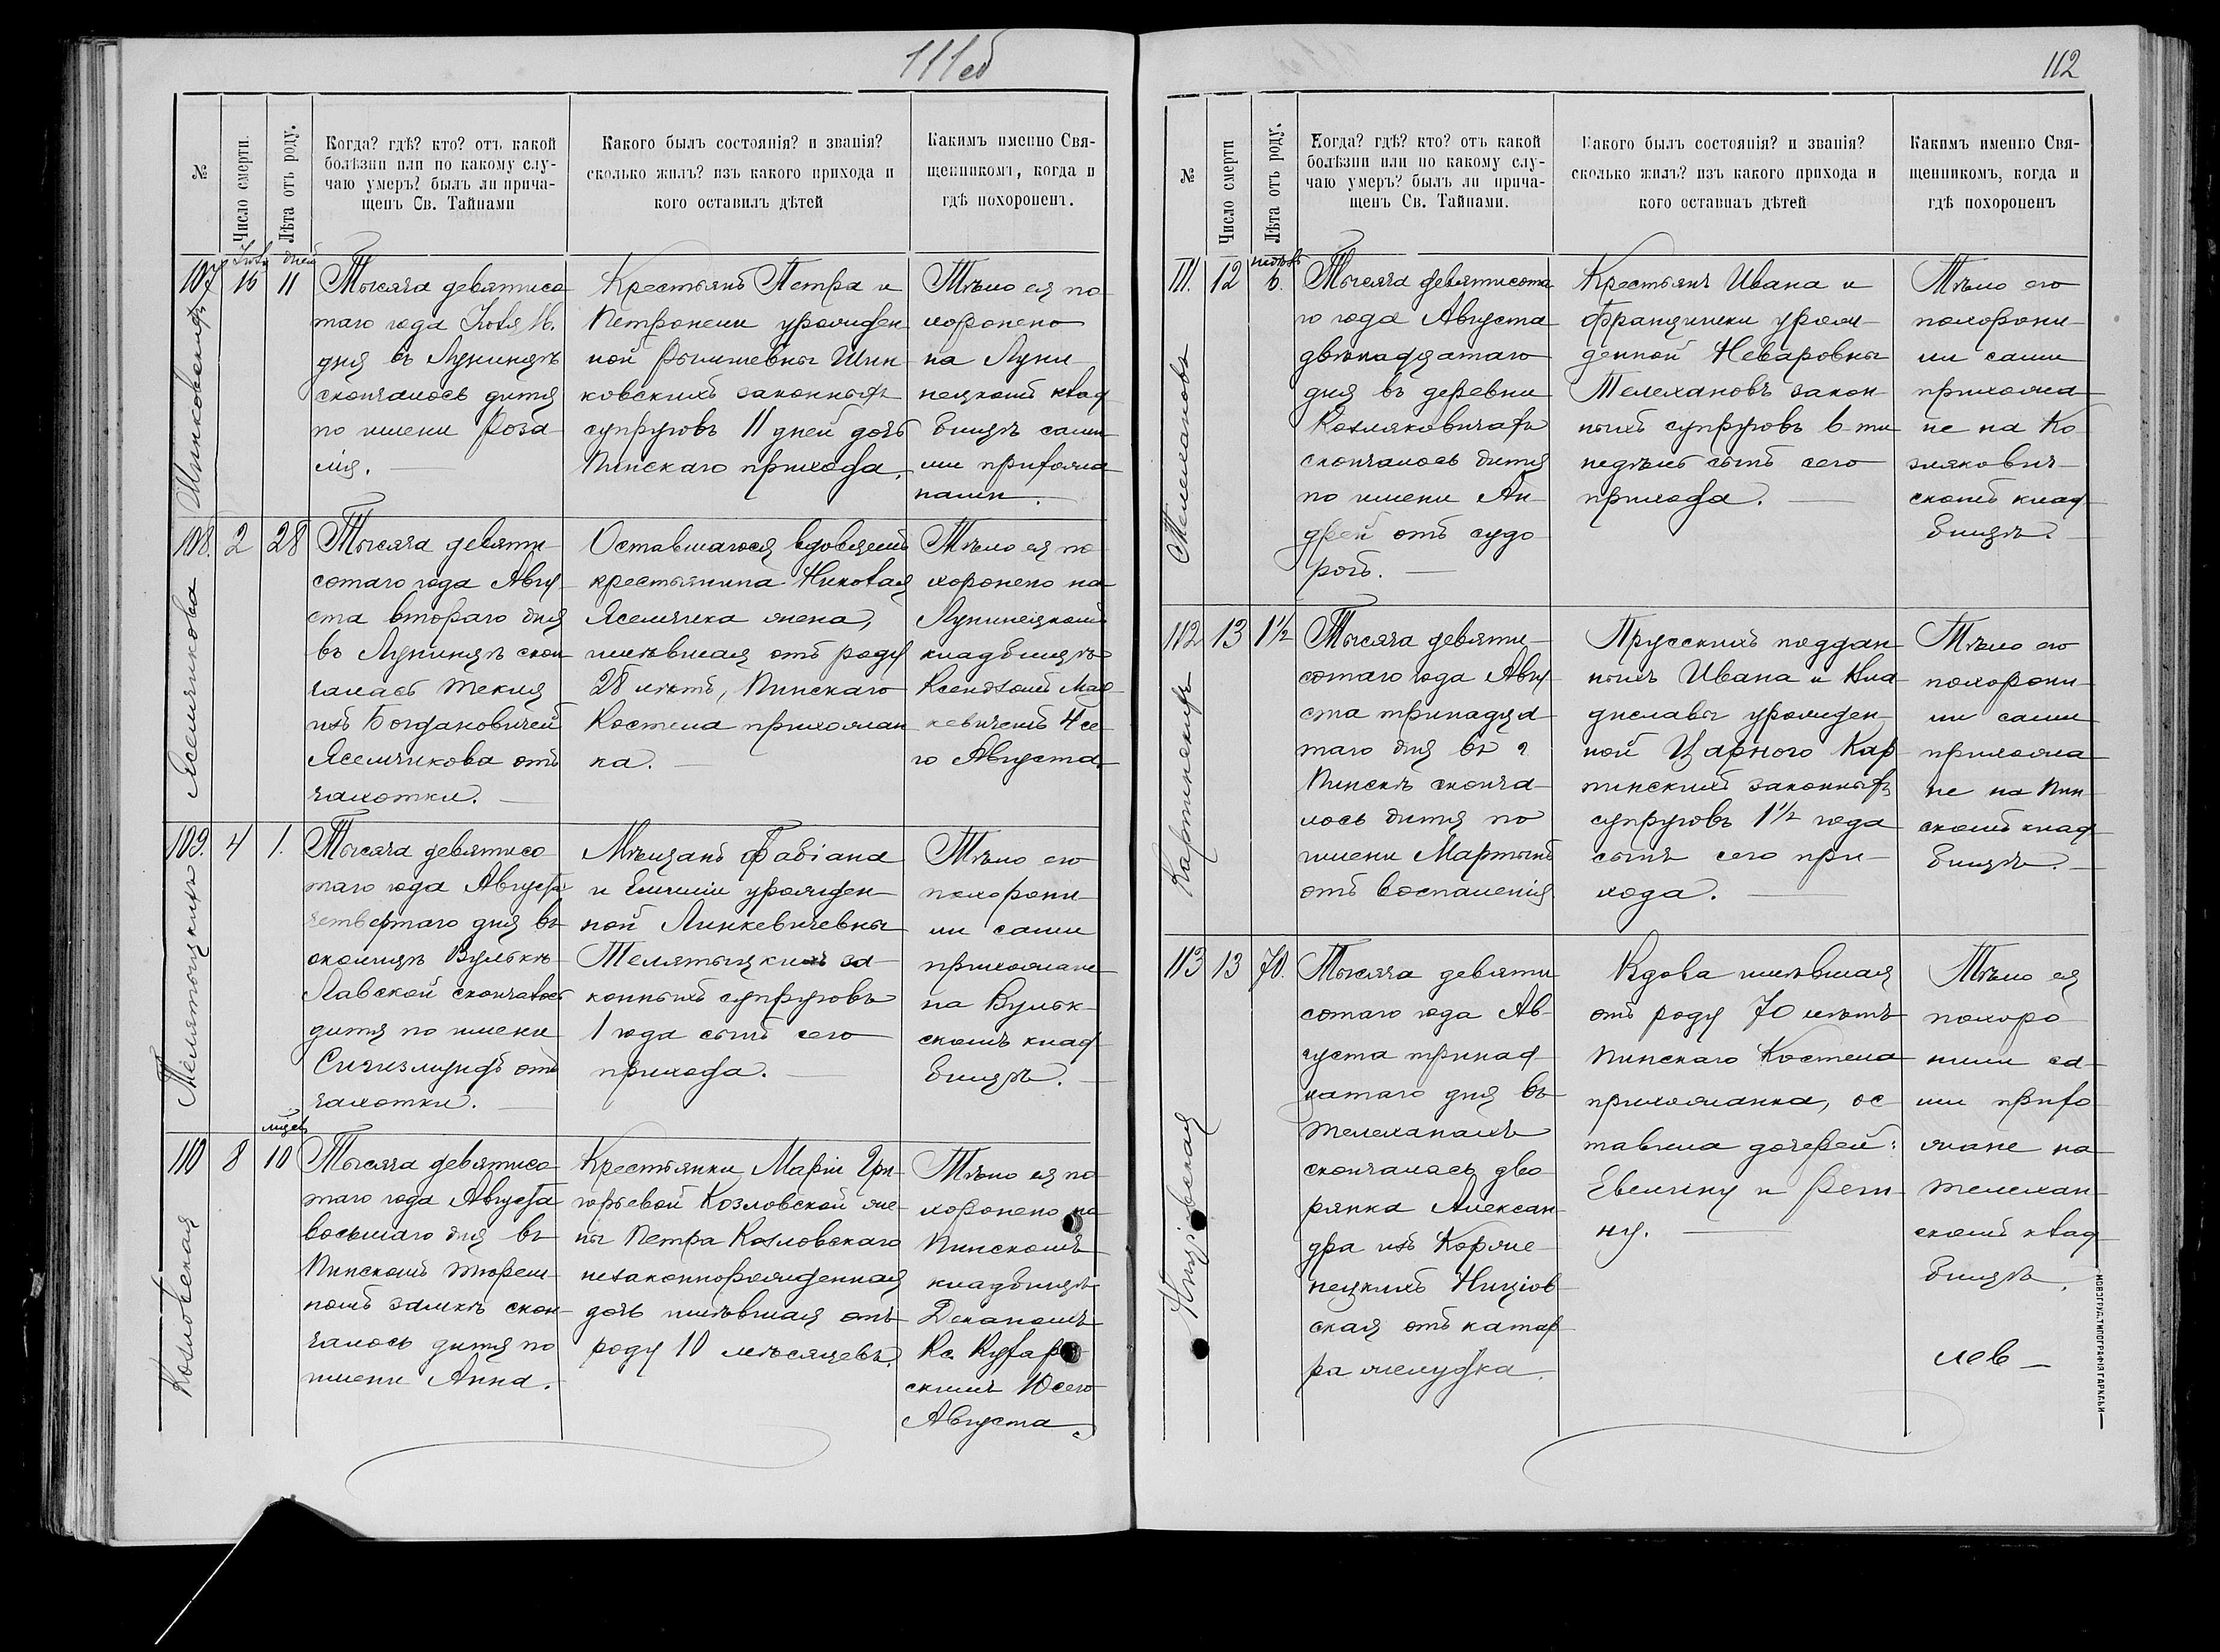 111об
№
Число смерти.
Лѣта отъ роду.
Когда? гдѣ? кто? отъ какой
болѣзни или по какому слу-
чаю умеръ? былъ ли прича-
щенъ Св. Тайнами
Какого былъ состоянія? и званія?
сколько жилъ? изъ какого прихода и
кого оставилъ дѣтей
Какимъ именно Свя-
щенникомъ, когда и
гдѣ похороненъ.
107
Шинковскихъ
Іюля
16
дней
11
Тысяча девятисо
таго года Іюля 16.
дня въ Лунинцѣ
скончалось дитя
по имени Роза-
лія.
Крестьянъ Петра и
Петронели урожден
ной Рышневны Шин
ковскихъ законныхъ
супруговъ 11 дней дочь
Пинскаго прихода.
Тѣло ея по
хоронено
на Луни
нецкомъ клад
бищѣ сами
ми прихожа
нами.
108.
Яселчикова
2
28
Тысяча девяти-
сотаго года Авгу-
ста втораго дня
въ Лунинцѣ скон
чалась Текля
изъ Богдановичей
Яселчикова отъ
чахотки.
Оставшагося вдовцемъ
крестьянина Николая
Яселчика жена,
имѣвшая отъ роду
28 лѣтъ, Пинскаго
Костела прихожан
ка.
Тѣло ея по
хоронено на
Лунинецкомъ
кладбищѣ
Ксендзомъ Мац
кевичемъ 4 се-
го Августа.
109.
Телятыцкихъ
4
1.
Тысяча девятисо
таго года Августа
четвертаго дня въ
околицѣ Вулькѣ
Лавской скончалось
дитя по имени
Сигизмундъ отъ
чахотки.
Мѣщанъ Фабіана
и Емиліи урожден-
ной Линкевичевны
Телятыцкихъ за
конныхъ супруговъ
1 года сынъ сего
прихода.
Тѣло его
похорони-
ли сами
прихожане
на Вульк-
скомъ клад
бищѣ.
110
Козловская
8
мѣсяц.
10
Тысяча девятисо
таго года Августа
восьмаго дня въ
Пинскомъ тюрем-
номъ замкѣ скон-
чалось дитя по
имени Анна.
Крестьянки Маріи Гри-
горьевой Козловской же-
ны Петра Козловскаго
незаконнорожденная
дочь имѣвшая отъ
роду 10 мѣсяцевъ.
Тѣло ея по
хоронено на
Пинскомъ
кладбищѣ
Деканомъ
Кс.
скимъ 10 сего
Августа.
112
№
Число смерти
Лѣта отъ роду.
Когда? гдѣ? кто? отъ какой
болѣзни или по какому слу-
чаю умеръ? былъ ли прича-
щенъ Св. Тайнами.
Какого былъ состоянія? и званія?
сколько жилъ? изъ какого прихода и
кого оставилъ дѣтей
Какимъ именно Свя-
щенникомъ, когда и
гдѣ похороненъ
111.
Телехановъ
12
недѣль
6.
Тысяча девятисота
го года Августа
двѣнадцатаго
дня въ деревни
Козляковичахъ
скончалось дитя
по имени Ан-
дрей отъ судо
рогъ.
Крестьянъ Ивана и
Францишки урож-
денной Неваровны
Телехановъ закон-
ныхъ супруговъ 6-ти
недѣль сынъ сего
прихода.
Тѣло его
похорони-
ли сами
прихожа
не на Ко
зляков­ич-
скомъ клад
бищѣ.
112
Картинскихъ
13
1½
Тысяча девяти-
сотаго года Авгу-
ста тринадца
таго дня въ г
Пинскѣ сконча-
лось дитя по
имени Мартынъ
отъ воспаленія
Прусскихъ поддан
ныхъ Ивана и Вла
диславы урожден-
ной Царного Кар
тинскихъ законныхъ
супруговъ 1½ года
сынъ сего при-
хода.
Тѣло его
похорони-
ли сами
прихожа
не на Пин
скомъ клад
бищѣ.
113
Ниціовская
13
70.
Тысяча девяти
сотаго года Ав-
густа тринад
цатаго дня въ
Телеханахъ
скончалась дво-
рянка Алексан
дра изъ Корже-
нецкихъ Ниціов
ская отъ катар
ра желудка.
Вдова имѣвшая
отъ роду 70 лѣтъ
Пинскаго Костела
прихожанка, ос
тавила дочерей:
Евелину и Реги-
ну.
Тѣло ея
похоро
нили са-
ми прихо
жане на
Телехан-
скомъ клад
бищѣ.
лев